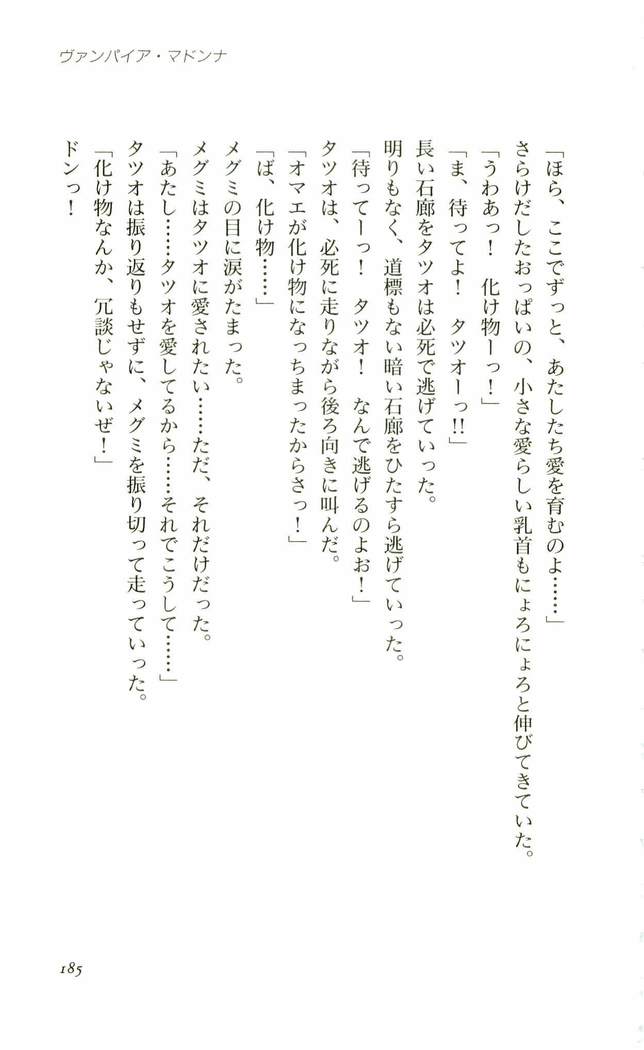 ヴァンパイア・マドンナ
「ほら、ここでずっと、あたしたち愛を育むのよ……」
さらけだしたおっぱいの、小さな愛らしい乳首もにょろにょろと伸びてきていた。
「うわあっ！　化け物ーっ！」
「ま、待ってよ！　タツオーっ!!」
長い石廊をタツオは必死で逃げていった。
明りもなく、道標もない暗い石廊をひたすら逃げていった。
「待ってーっ！　タツオ！　なんで逃げるのよお！」
タツオは、必死に走りながら後ろ向きに叫んだ。
「オマエが化け物になっちまったからさっ！」
「ば、化け物……」
メグミの目に涙がたまった。
メグミはタツオに愛されたい……ただ、それだけだった。
「あたし……タツオを愛してるから……それでこうして……」
タツオは振り返りもせずに、メグミを振り切って走っていった。
「化け物なんか、冗談じゃないぜ！」
ドンっ！
185